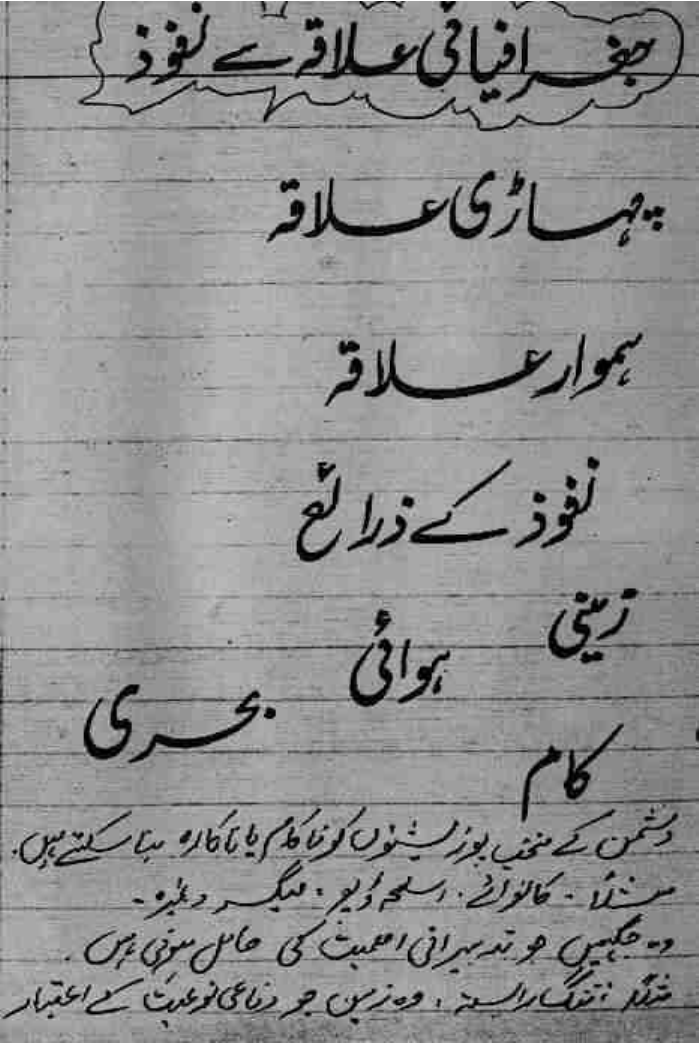 جغرافیائی علاقہ سے نفوذ
پہاڑی علاقہ
ہموار علاقہ
نفوذ کے ذرائع
زمینی
ہوائی
بحری
کام
دشمن کے منتخب پوزیشنوں کو ناکام یا ناکارہ بنا سکتے ہیں۔
مثلاً ۔ کانوائے ، اسلحہ ڈپو ، وغیرہ ۔
وہ جگہیں جو تدبیراتی اہمیت کی حامل ہوتی ہیں ۔
مثلاً : تنگ راستہ ، وہ زمین جو دفاعی نوعیت کے اعتبار